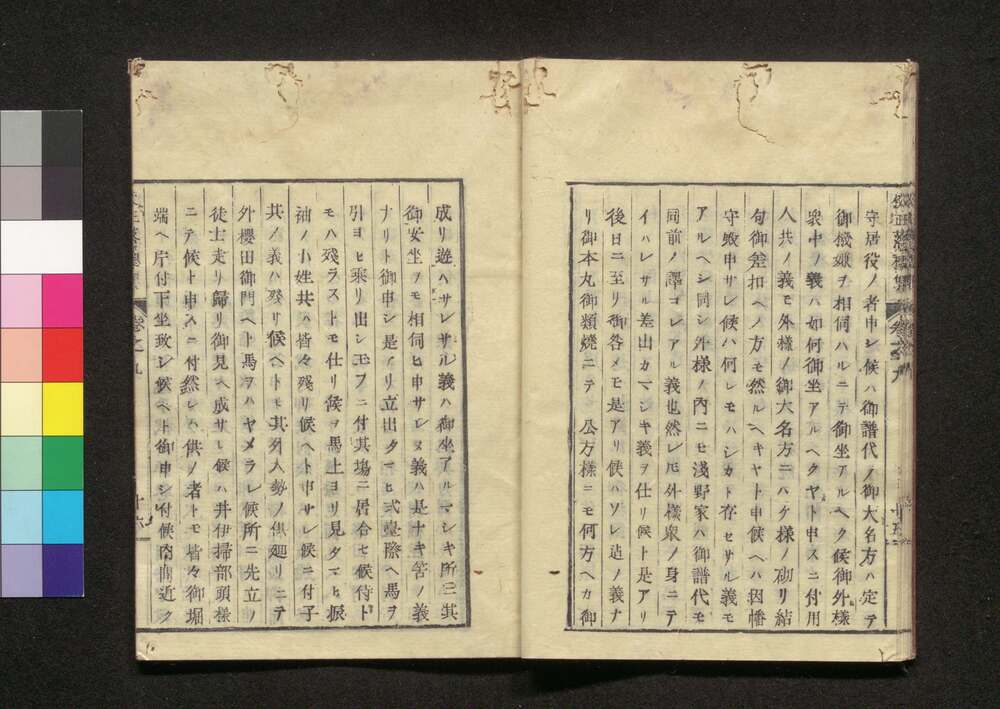 守居役ノ者申シ候ハ御譜代ノ御大名方ハ定テ
御機嫌ヲ相伺ハルニテ御坐アルヘク候御外様
衆中ノ義ハ如何御坐アルヘクヤト申スニ付用
人共ノ義モ外様ノ御大名方ニハケ様ノ砌リ結
句御差扣ヘノ方モ然ルヘキヤト申候ヘハ因幡
守殿申サレ候ハ何レモハシカト存セサル義モ
アルヘシ同シ外様ノ內ニモ淺野家ハ御譜代モ
同前ノ譯コレアル義也然レ𪜈外様衆ノ身ニテ
イハレサル差出カマシキ義ヲ仕リ候ト是アリ
後日ニ至リ御咎メモ是アリ候ハソレ迠ノ義ナ
リ御本丸御類燒ニテ公方様ニモ何方ヘカ御
成リ遊ハサレサル義ハ御坐アルマシキ所ニ其
御安坐ヲモ相伺ヒ申サレヌ義ハ是ナキ筈ノ義
ナリト御申シ是アリ立出タマヒ式臺際ヘ馬ヲ
引ヨセ乘リ出シ玉フニ付其塲ニ居合セ候侍ト
モハ殘ラストモ仕リ候ヲ馬上ヨリ見タマヒ振
袖ノ小姓共ハ皆々殘リ候ヘト申サレ候ニ付子
共ノ義ハ殘リ候ヘトモ其外人勢ノ供廻リニテ
外櫻田御門ヘト馬ヲハヤメラレ候所ニ先立ノ
徒士走リ歸リ御見ヘ成サレ候ハ井伊掃部頭様
ニテ候ト申スニ付然レハ供ノ者トモ皆々御堀
端ヘ片付下坐致シ候ヘト御申シ付候內間近ク